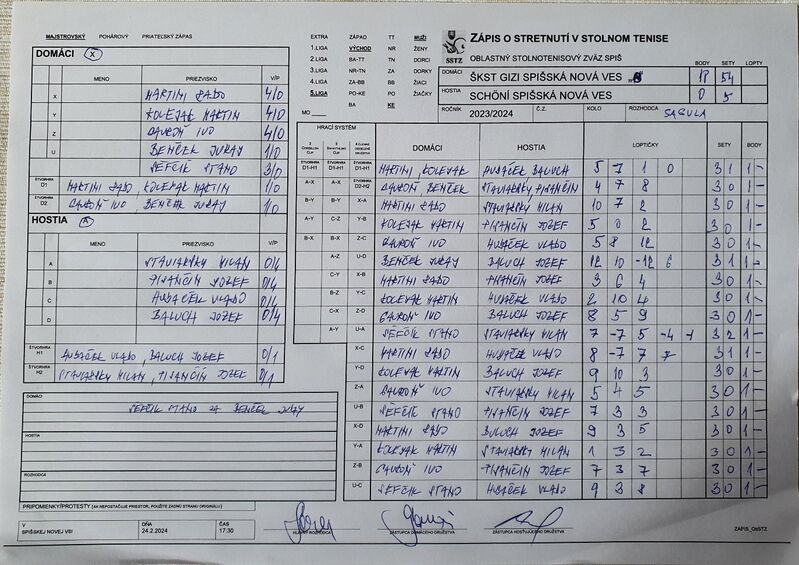 MAJSTROVSKÝ POHÁROVÝ PRIATEĽSKÝ ZÁPAS
DOMÁCI X
MENO PRIEZVISKO V/P
X MARTINI LADO 4/0
Y KOLEJAK MARTIN 4/0
Z GAVROŇ IVO 4/0
U BENČEK JURAJ 1/0
ŠEFČÍK STANO 3/0
ŠTVORHRA D1 MARTINI LADO KOLEJAK MARTIN 1/0
ŠTVORHRA D2 GAVROŇ IVO, BENČEK JURAJ 1/0
HOSTIA A
MENO PRIEZVISKO V/P
A STAVIARSKY MILAN 0/4
B PIVANČÍN JOZEF 0/4
C HUDAČEK VLADO 0/4
D BALUCH JOZEF 0/4
ŠTVORHRA H1 HUDAČEK VLADO, BALUCH JOZEF 0/1
ŠTVORHRA H2 STAVIARSKY MILAN, PIVANČÍN JOZEF 0/1
DOMÁCI
ŠEFČÍK STANO ZA BENČEK JURAJ
HOSTIA
ROZHODCA
PRIPOMIENKY/PROTESTY (AK NEPOSTAČUJE PRIESTOR, POUŽITE ZADNÚ STRANU ORIGINÁLU)
V SPIŠSKEJ NOVEJ VSI
DŇA 24.2.2024
ČAS 17:30
EXTRA ZÁPAD TT MUŽI
1.LIGA VÝCHOD NR ŽENY
2.LIGA BA-TT TN DORCI
3.LIGA NR-TN ZA DORKY
4.LIGA ZA-BB BB ŽIACI
5.LIGA PO-KE PO ŽIAČKY
BA KE
MO
SSTZ
ZÁPIS O STRETNUTÍ V STOLNOM TENISE
OBLASTNÝ STOLNOTENISOVÝ ZVÄZ SPIŠ
BODY SETY LOPTY
DOMÁCI ŠKST GIZI SPIŠSKÁ NOVÁ VES 18 54
HOSTIA SCHÖNI SPIŠSKÁ NOVÁ VES 0 5
ROČNÍK 2023/2024 Č.Z. KOLO ROZHODCA SABULA
HRACÍ SYSTÉM
DOMÁCI HOSTIA LOPTIČKY SETY BODY
ŠTVORHRA D1-H1 ŠTVORHRA D1-H1 ŠTVORHRA D1-H1 MARTINI, KOLEJAK HUDAČEK BALUCH 5 7 1 0 3 1 1 -
A-X A-X ŠTVORHRA D2-H2 GAVROŇ, BENČEK STAVIARSKY, PIVANČÍN 4 7 8 3 0 1 -
B-Y B-Y X-A MARTINI LADO STAVIARSKY MILAN 10 7 2 3 0 1 -
A-Y C-Z Y-B KOLEJAK MARTIN PIVANČÍN JOZEF 5 0 2 3 0 1 -
B-X B-X Z-C GAVROŇ IVO HUDAČEK VLADO 5 8 12 3 0 1 -
A-Z U-D BENČEK JURAJ BALUCH JOZEF 12 10 -12 6 3 1 1 -
C-Y X-B MARTINI LADO PIVANČÍN JOZEF 3 6 4 3 0 1 -
B-Z Y-C KOLEJAK MARTIN HUDAČEK VLADO 2 10 4 3 0 1 -
C-X Z-D GAVROŇ IVO BALUCH JOZEF 8 5 9 3 0 1 -
A-Y U-A ŠEFČÍK STANO STAVIARSKY MILAN 7 -7 5 -4 3 2 1 -
X-C MARTINI LADO HUDAČEK VLADO 8 -7 7 3 1 1 -
Y-D KOLEJAK MARTIN BALUCH JOZEF 9 10 3 3 0 1 -
Z-A GAVROŇ IVO STAVIARSKY MILAN 5 4 5 3 0 1 -
U-B ŠEFČÍK STANO PIVANČÍN JOZEF 7 3 3 3 0 1 -
X-D MARTINI LADO BALUCH JOZEF 9 3 5 3 0 1 -
Y-A KOLEJAK MARTIN STAVIARSKY MILAN 1 3 2 3 0 1 -
Z-B GAVROŇ IVO PIVANČÍN JOZEF 7 3 7 3 0 1 -
U-C ŠEFČÍK STANO HUDAČEK VLADO 9 3 8 3 0 1 -
HLAVNÝ ROZHODCA
ZÁSTUPCA DOMÁCEHO DRUŽSTVA
ZÁSTUPCA HOSŤUJÚCEHO DRUŽSTVA
ZAPIS_ObSTZ